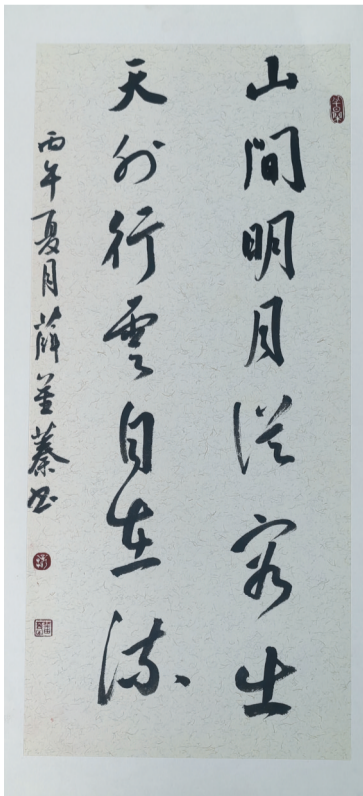 山間明月從容出
天外行雲自在流
丙午夏月薛金蓁书